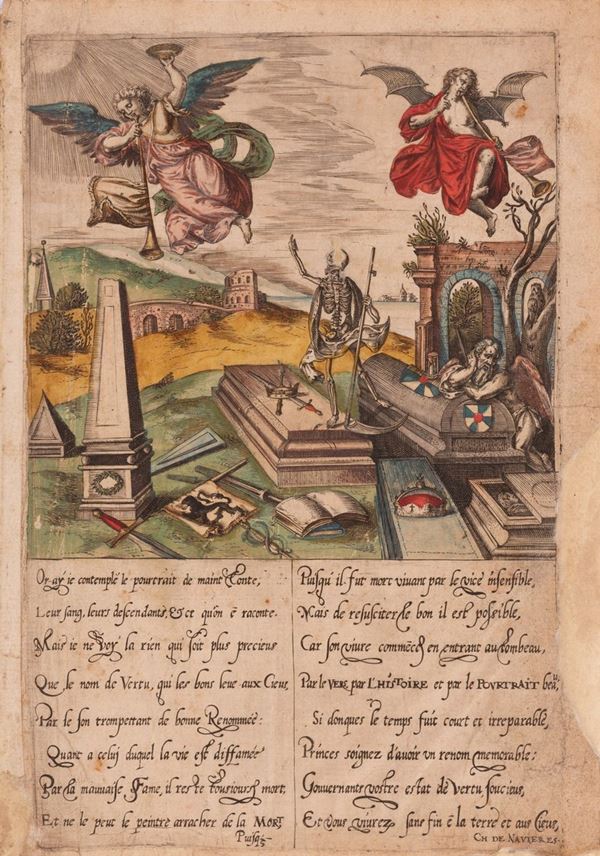 Or ay ie contemplé le pourtrait de maint Conte,
Leur sang, leurs descendants, & ce qu'on ē raconte.
Mais ie ne voy la rien qui soit plus precieus
Que le nom de Vertu, qui les bons leue aux Cieus,
Par le son trompettant de bonne Renommée:
Quant a celui duquel la vie est diffamée
Par la mauuaise Fame, il reste tousiours mort,
Et ne le peut le peintre arracher de la MORT
Puisq
Puisqu'il fut mort viuant par le vice insensible,
Mais de resusciter le bon il est possible,
Car son viure commēce en entrant au tombeau,
Par le VERS, par L'HISTOIRE et par le POVRTRAIT beau,
Si donques le temps fuit court et irreparable,
Princes soignez d'auoir vn renom memorable:
Gouuernants vostre estat de Vertu soucieus,
Et vous viurez sans fin ē la terre et aus Cieus,
CH DE NAVIERES.